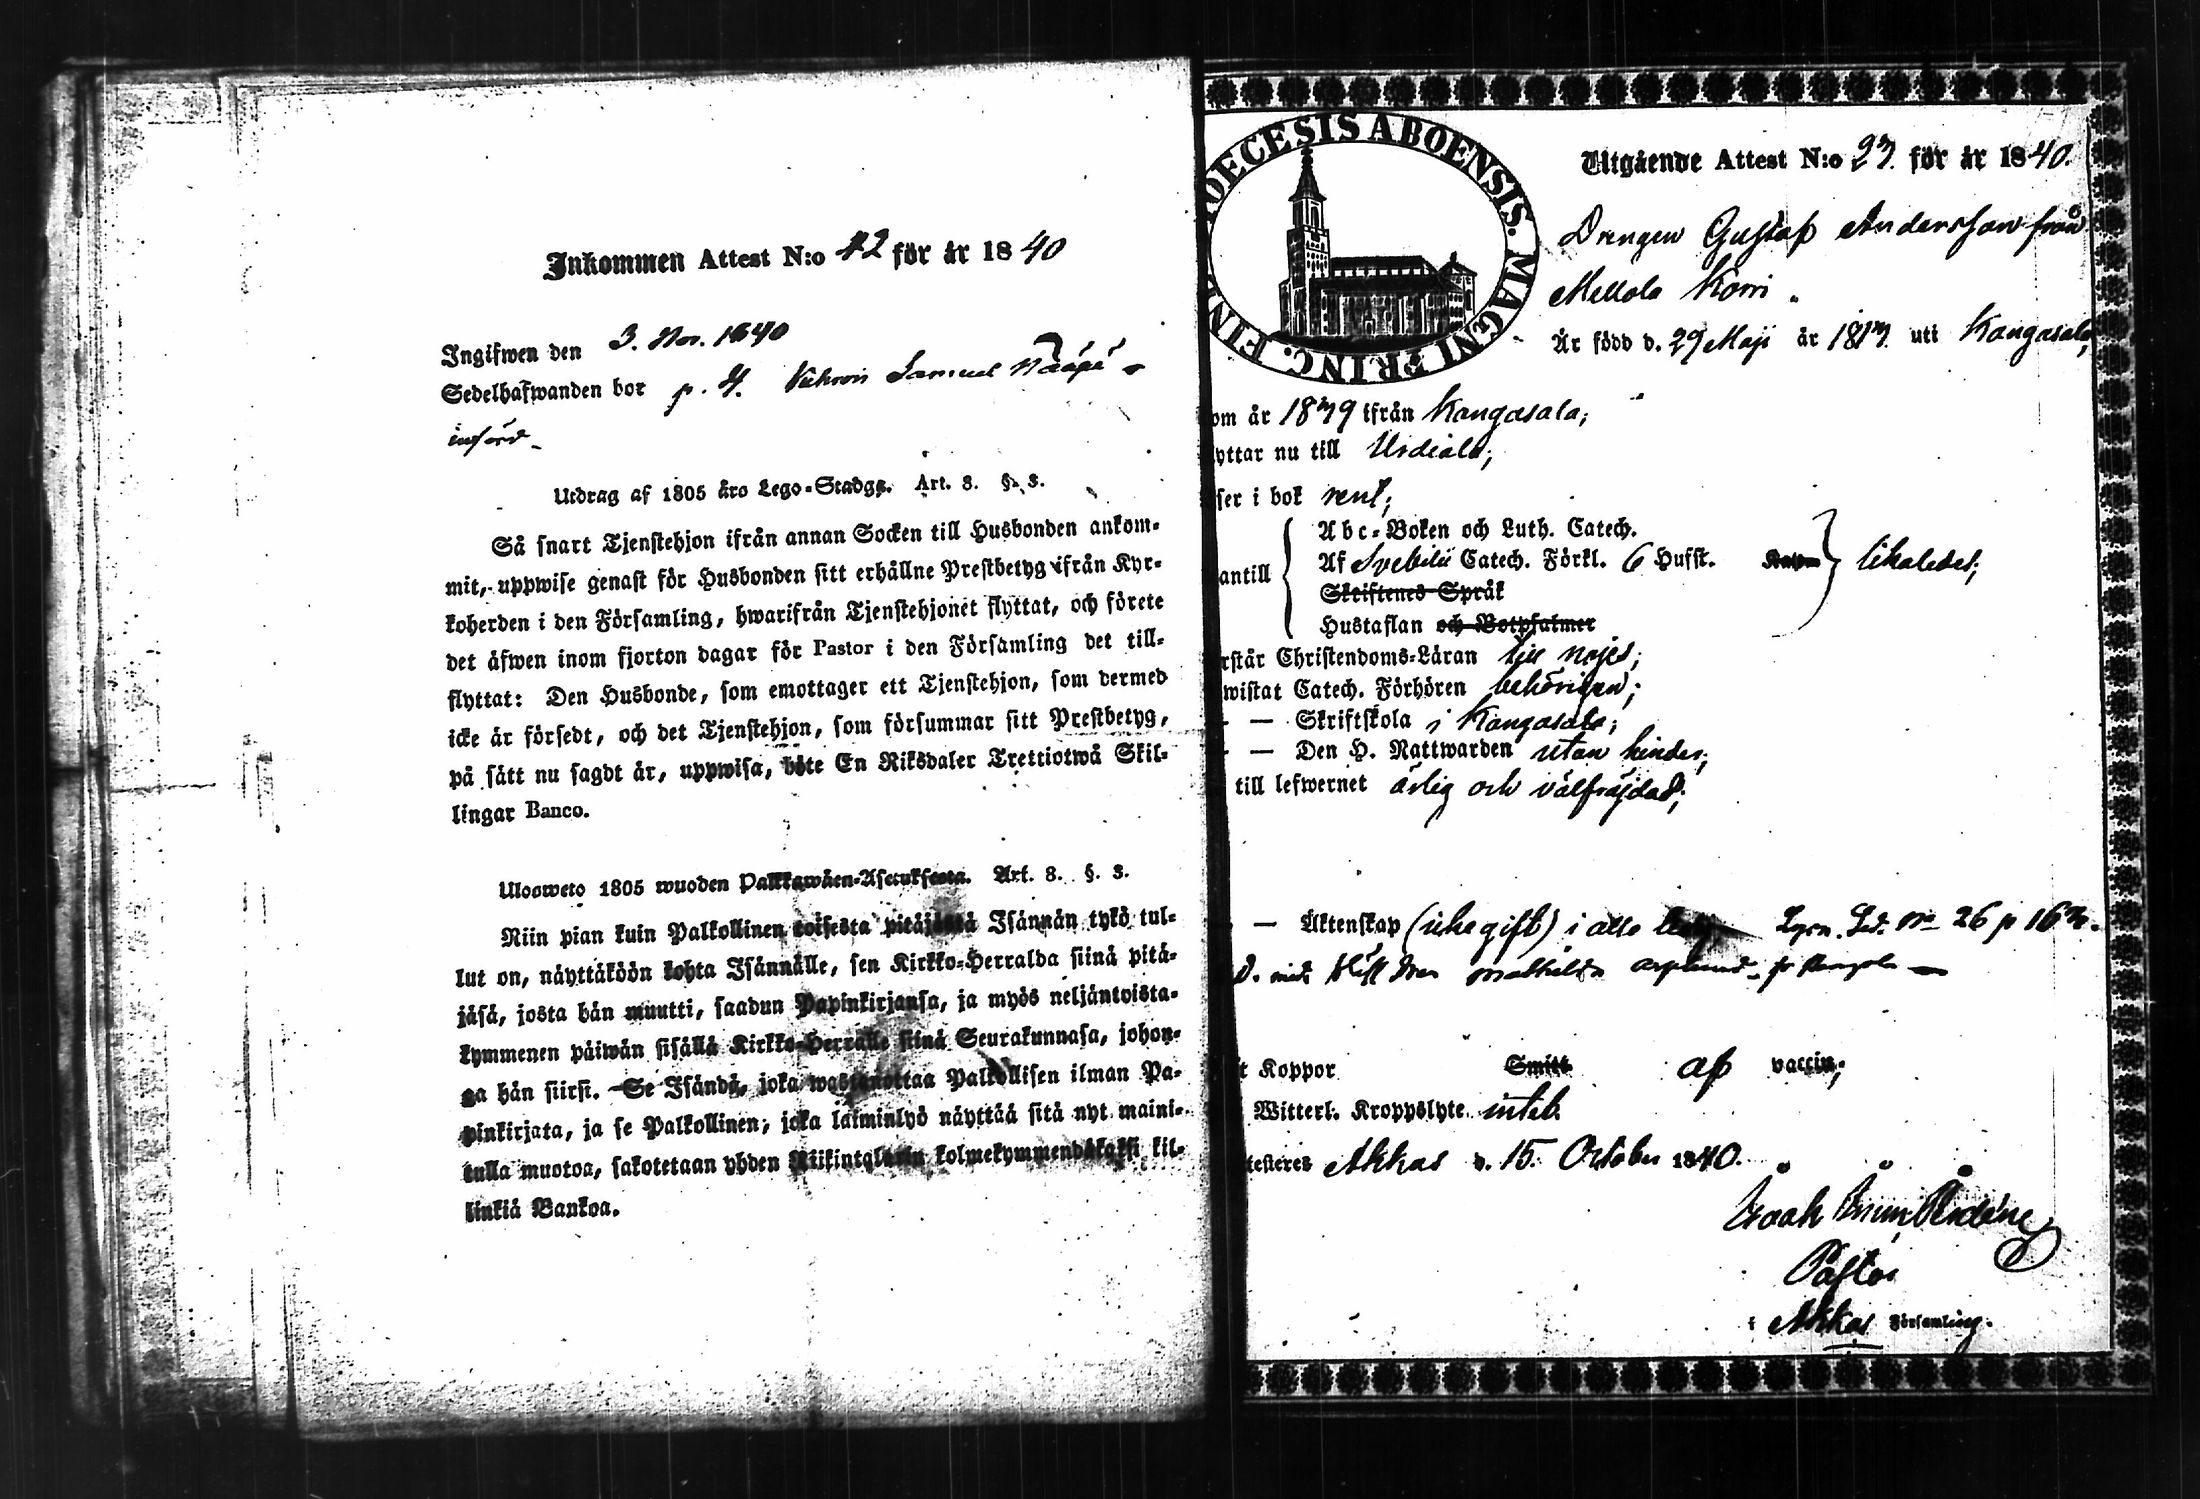 Inkommen Attest N:o 42 för år 1840
Ingifwen den 3. Nov. 1840
Sedelhafwanden bor p. 4. Samuel
införd
Utdrag af 1805 års Lego-Stadga. Art. 8. §. 3.
Så snart Tjenstehjon ifrån annan Socken till Husbonden ankom-
mit, uppwise genast för Husbonden sitt erhållne Prestbetyg ifrån Kyr-
koherden i den Församling, hwarifrån Tjenstehjonet flyttat, och förete
det äfwen inom fjorton dagar för Pastor i den Församling det till-
flyttat: Den Husbonde, som emottager ett Tjenstehjon, som dermed
icke är försedt, och det Tjenstehjon, som försummar sitt Prestbetyg,
på sätt nu sagdt är, uppwisa, böte En Riksdaler Trettiotwå Skil-
lingar Banco.
Ulosweto 1805 wuoden Palkkawäen-Asetuksesta. Art. 8. §. 3.
Niin pian kuin Palkollinen toisesta pitäjästä Isännän tykö tul-
lut on, näyttäköön kohta Isännälle, sen Kirkko-Herralda siinä pitä-
jäsä, josta hän muutti, saadun Papinkirjansa, ja myös neljäntoista-
kymmenen päiwän sisällä Kirkko-Herralle siinä Seurakunnasa, johon-
ga hän siirsi. Se Isändä, joka wastanottaa Palkollisen ilman Pa-
pinkirjata, ja se Palkollinen, joka laiminlyö näyttää sitä nyt maini-
tulla muotoa, sakotetaan yhden Riikintalarin kolmekymmendäkaksi kil-
linkiä Bankoa.
DIOECESIS ABOENSIS. MAGNI PRINC. FINL
Utgående Attest N:o 23. för år 1840.
Drengen Gustaf Andersson från
Mellola Korri
Är född d. 29 Maji år 1813 uti Kangasala,
om år 1839 ifrån Kangasala;
yttar nu till Urdiala;
ser i bok rent;
antill
Abc-Boken och Luth. Catech.
Af Svebilii Catech. Förkl. 6 Hufst. likaledes;
Skriftenes Språk
Hustaflan och Botpsalmer
rstår Christendoms-Läran till nöjes;
wistat Catech. Förhören behörigen;
— Skriftskola i Kangasala;
— Den H. Nattwarden utan hinder;
till lefwernet ärlig och välfräjdad;
— Äktenskap (icke gift) i allo 26 p 163.
t Koppor Smitt af vaccin;
Witterl. Kroppslyte intet
testeres Akkas d. 15. October 1840.
Pastor
i Akkas Församling.